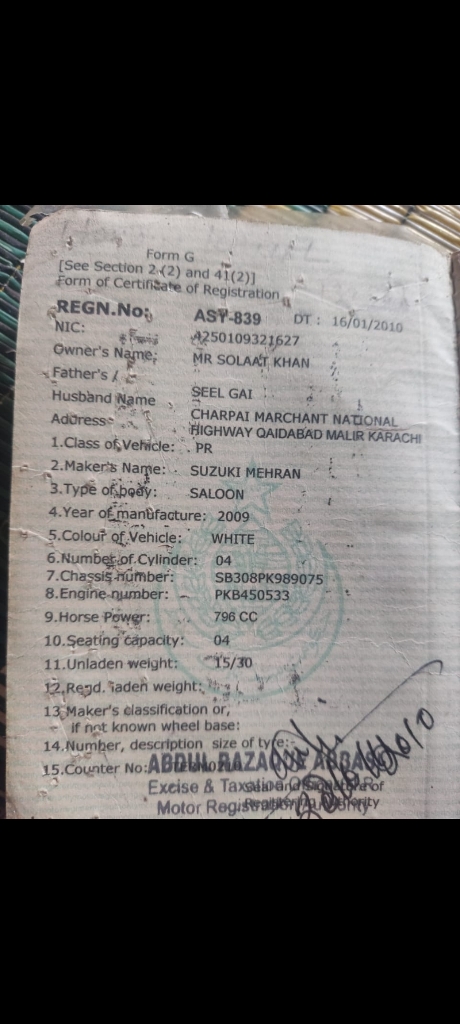 Form G
[See Section 2 (2) and 41(2)]
Form of Certificate of Registration
REGN.No: ASY-839 DT : 16/01/2010
NIC: 4250109321627
Owner's Name: MR SOLAAT KHAN
Father's /
Husband Name SEEL GAI
Address CHARPAI MARCHANT NATIONAL
HIGHWAY QAIDABAD MALIR KARACHI
1.Class of Vehicle: PR
2.Maker's Name: SUZUKI MEHRAN
3.Type of body: SALOON
4.Year of manufacture: 2009
5.Colour of Vehicle: WHITE
6.Number of Cylinder: 04
7.Chassis number: SB308PK989075
8.Engine number: PKB450533
9.Horse Power: 796 CC
10.Seating capacity: 04
11.Unladen weight: 15/30
12.Regd. laden weight:
13 Maker's classification or,
if not known wheel base:
14.Number, description size of tyre:-
15.Counter No: ABDUL RAZAQUE
Excise & Taxation
Seal and Signature of
Motor Registration Authority